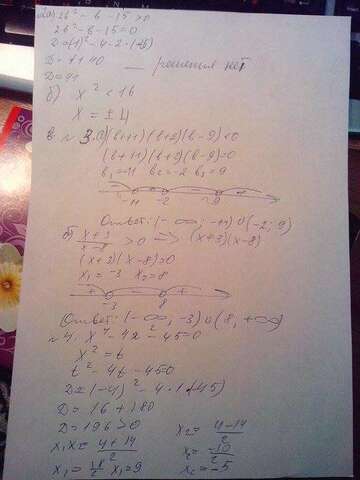 2а) 2в² - в - 15 > 0
2в² - в - 15 = 0
D = (1)² - 4 · 2 · (-15)
D = 1 + 40
D = 41 — решения нет
б) x² < 16
x = ± 4
в ~ 3. а) (в+11)(в+2)(в-9) < 0
(в+11)(в+2)(в-9) = 0
в₁ = -11 в₂ = -2 в₃ = 9
- + - +
-11 -2 9
Ответ: (-∞; -11) ∪ (-2; 9)
б) x+3 / x-8 > 0 => (x+3)(x-8)
(x+3)(x-8) > 0
x₁ = -3 x₂ = 8
+ - +
-3 8
Ответ: (-∞, -3) ∪ (8, +∞)
~ 4. x⁴ - 4x² - 45 = 0
x² = t
t² - 4t - 45 = 0
D = (-4)² - 4 · 1 · (-45)
D = 16 + 180
D = 196 > 0
x₁ = 4+14 / 2 x₂ = 4-14 / 2
x₁ = 18/2 x₁ = 9 x₂ = -10 / 2
x₂ = -5